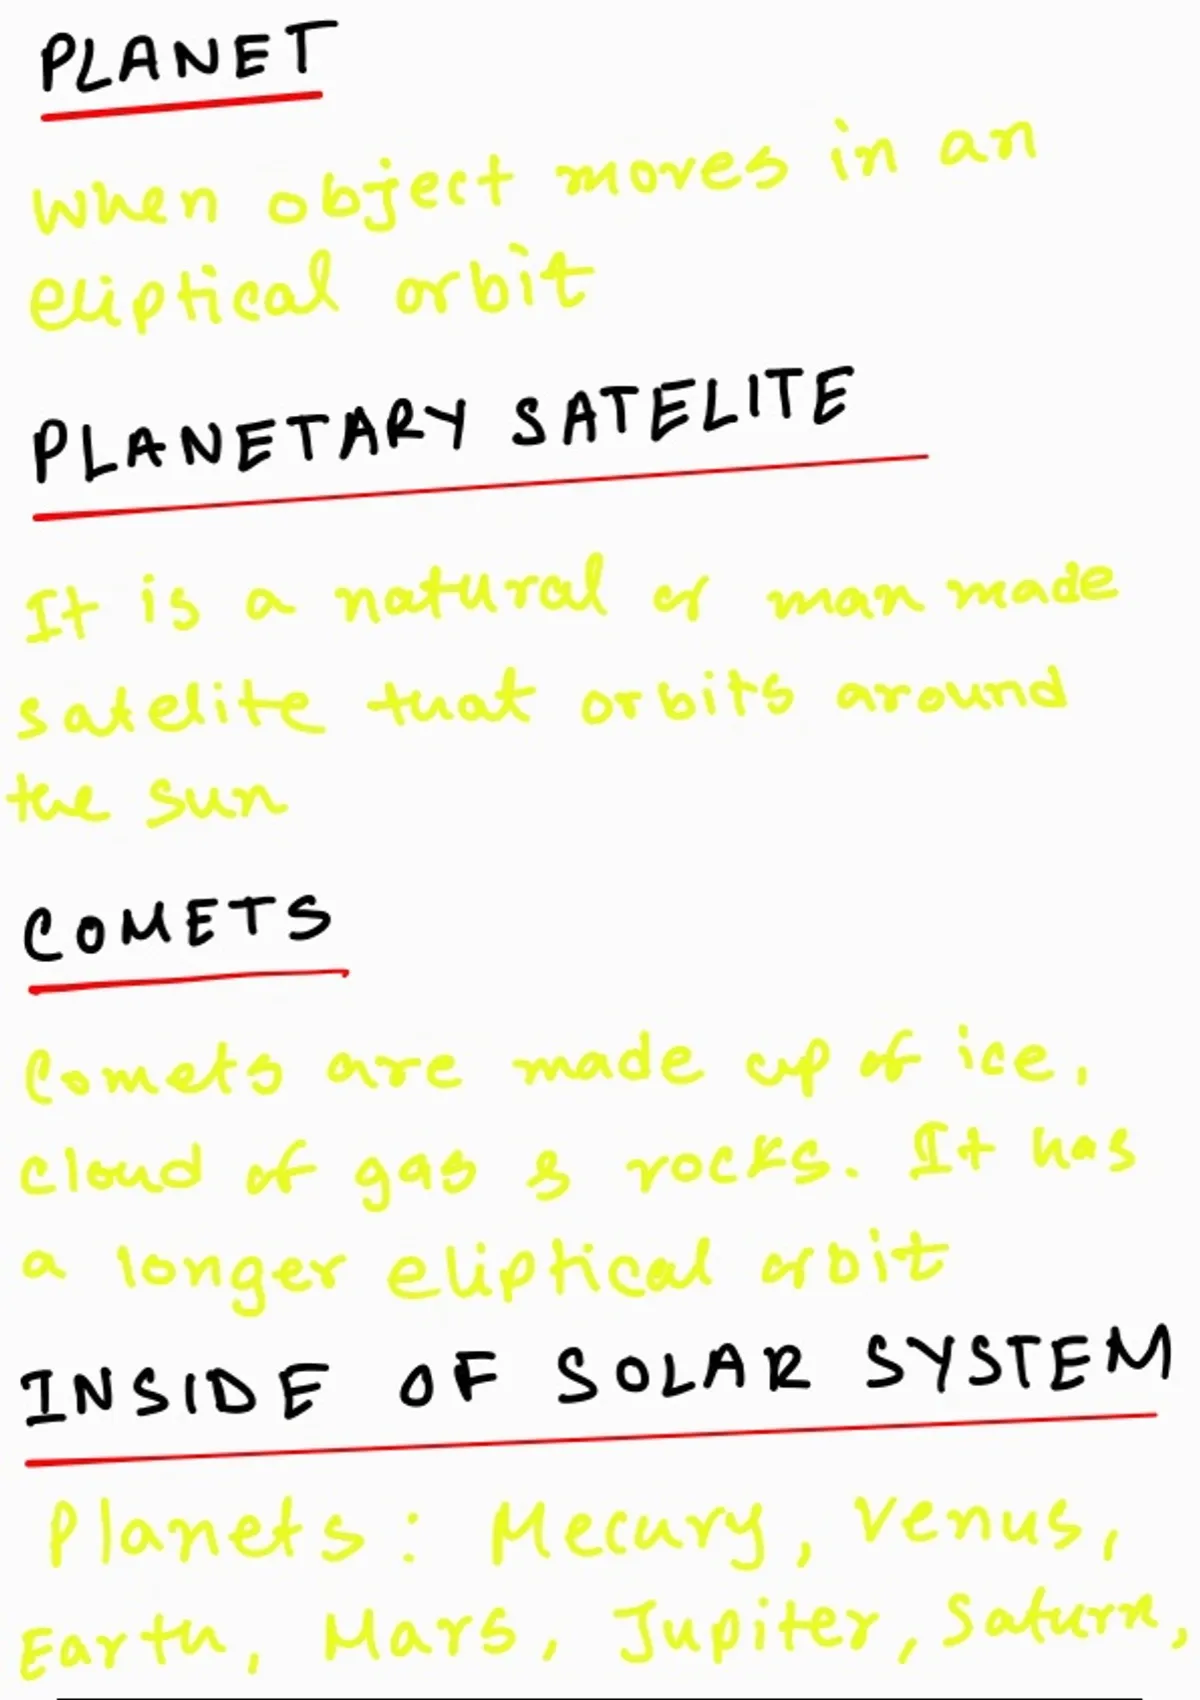 PLANET
When object moves in an
eliptical orbit
PLANETARY SATELITE
It is a natural or man made
satelite that orbits around
the sun
COMETS
Comets are made up of ice,
cloud of gas & rocks. It has
a longer eliptical orbit
INSIDE OF SOLAR SYSTEM
Planets: Mecury, Venus,
Earth, Mars, Jupiter, Saturn,